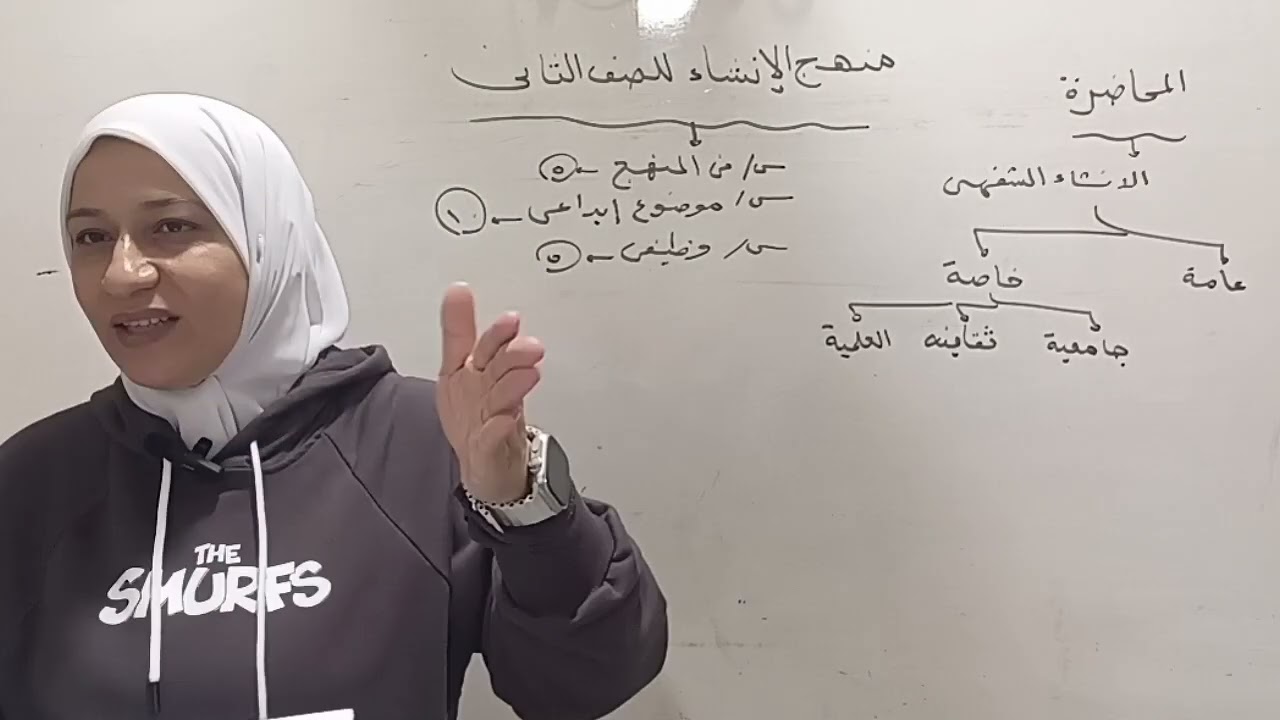 المحاضرة
الانشاء الشفهى
عامة خاصة
جامعية ثقافية العلمية
منهج الإنشاء للصف الثانى
س/ من المنهج ← ٥
س/ موضوع إبداعى ← ١٠
س/ وظيفى ← ٥
THE
SMURFS